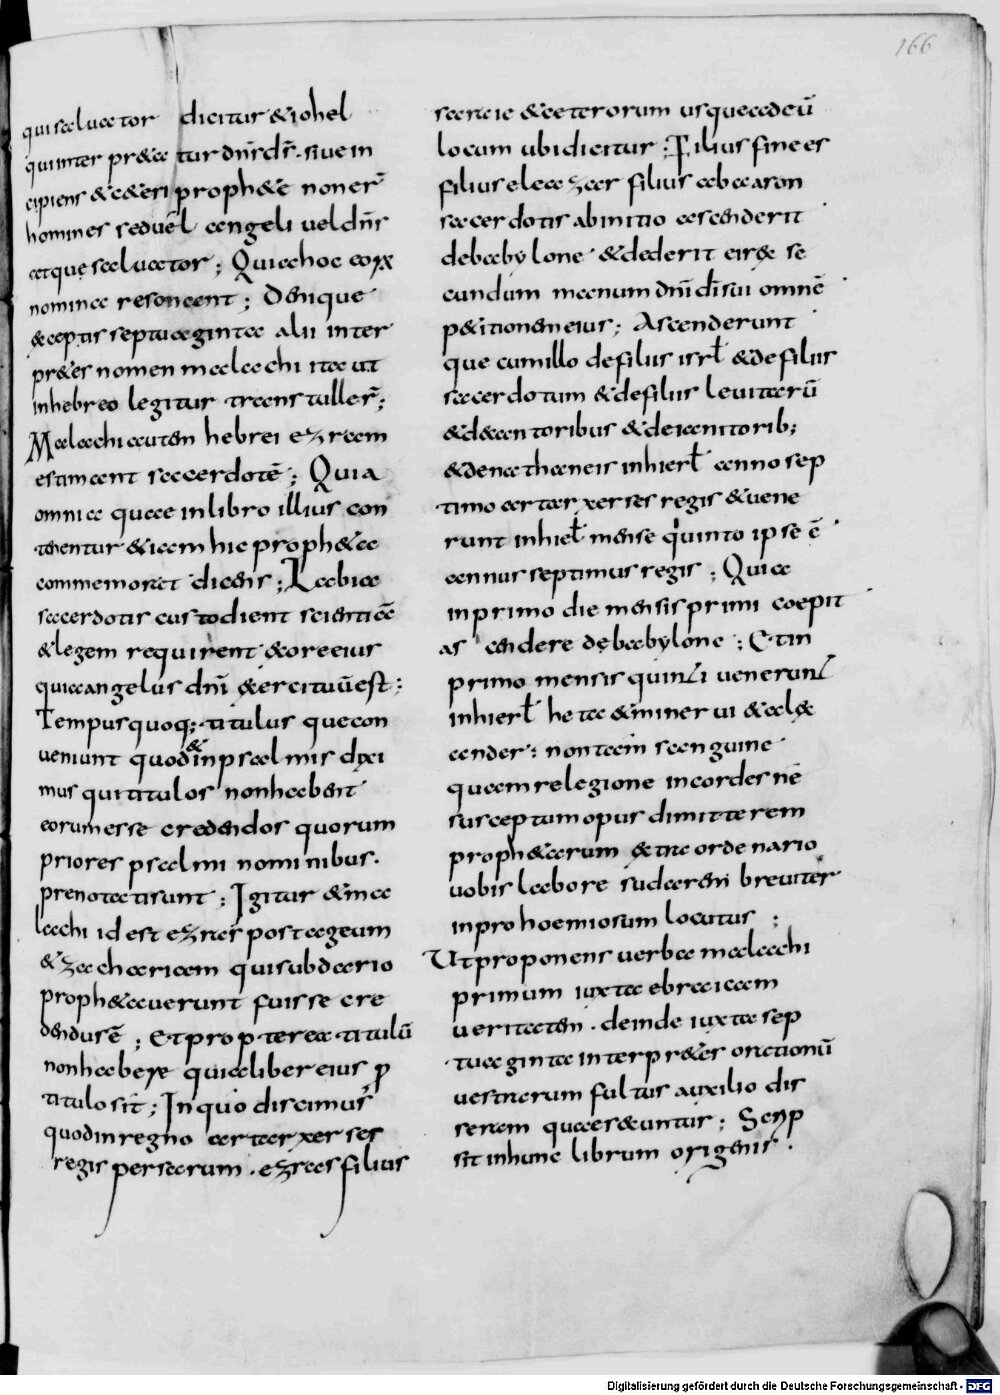 166
quisaluator dicitur & iohel
quiinter pr&a tur dn̄s ds̄. siue in
cipiens & c&eri proph&e non er̄
homines seduel̄ angeli uel dn̄s
atque saluator ; Quia hoc eorx
nomina resonant ; Denique
exceptis septuaginta alii inter
pr&es nomen malachi ita ut
inhebreo legitur transtuller̄ ;
Malachi autem hebrei ezram
estimant sacerdotē ; Quia
omnia quae inlibro illius con
tinentur &iam hic proph&a
commemorat dicens ; Labia
sacerdotis custodient scientiā
& legem requirent & ore eius
quia angelus dn̄i exercituū est ;
Tempus quoq; titulus que con
ueniunt quod & in psalmis dixi
mus qui titulos non habent
eorum esse credendos quorum
priores psalmi nominibus.
prenotati sunt ; Igitur & ma
lachi id est ezras post ageum
& zacchariam qui sub dario
proph&auerunt fuisse cre
dendus ē ; Et propterea titulū
non habere quia liber eius p
titulo sit ; In quo discimus
quod in regno artarxerses
regis persarum . ezras filius
saraie & ceterorum usque ad eū
locum ubi dicitur ; Filius finees
filius eleazar filius ab aaron
sacerdotis ab initio ascenderit
de babylone & dederit ei rex se
cundum manum dn̄i dī sui omnē
p&itionem eius ; Ascenderunt
que cum illo de filiis isrl̄ & de filiis
sacerdotum & de filiis leuitarū
& de cantoribus & de ianitorib;
& de nathaneis in hierl̄ anno sep
timo artarxerses regis & uene
runt in hierl̄ mense quinto ipse ē
annus septimus regis ; Quia
in primo die mensis primi coepit
as cendere de babylone ; Et in
primo mensis quinti uenerunt
in hierl̄ hec & minerui & alex
ander : non tam sanguine
quam relegione in cordes nē
susceptum opus dimitterem
proph&arum & tnc ordenario
uobis labore sudarem breuiter
in prohoemio sum locutus ;
Ut proponens uerba malachi
primum iuxta ebraicam
ueritatem . deinde iuxta sep
tuaginta interpr&es orationū
uestrarum fultus auxilio dis
seram quae secuntur ; Scrip
sit in hunc librum origenis .
Digitalisierung gefördert durch die Deutsche Forschungsgemeinschaft - DFG